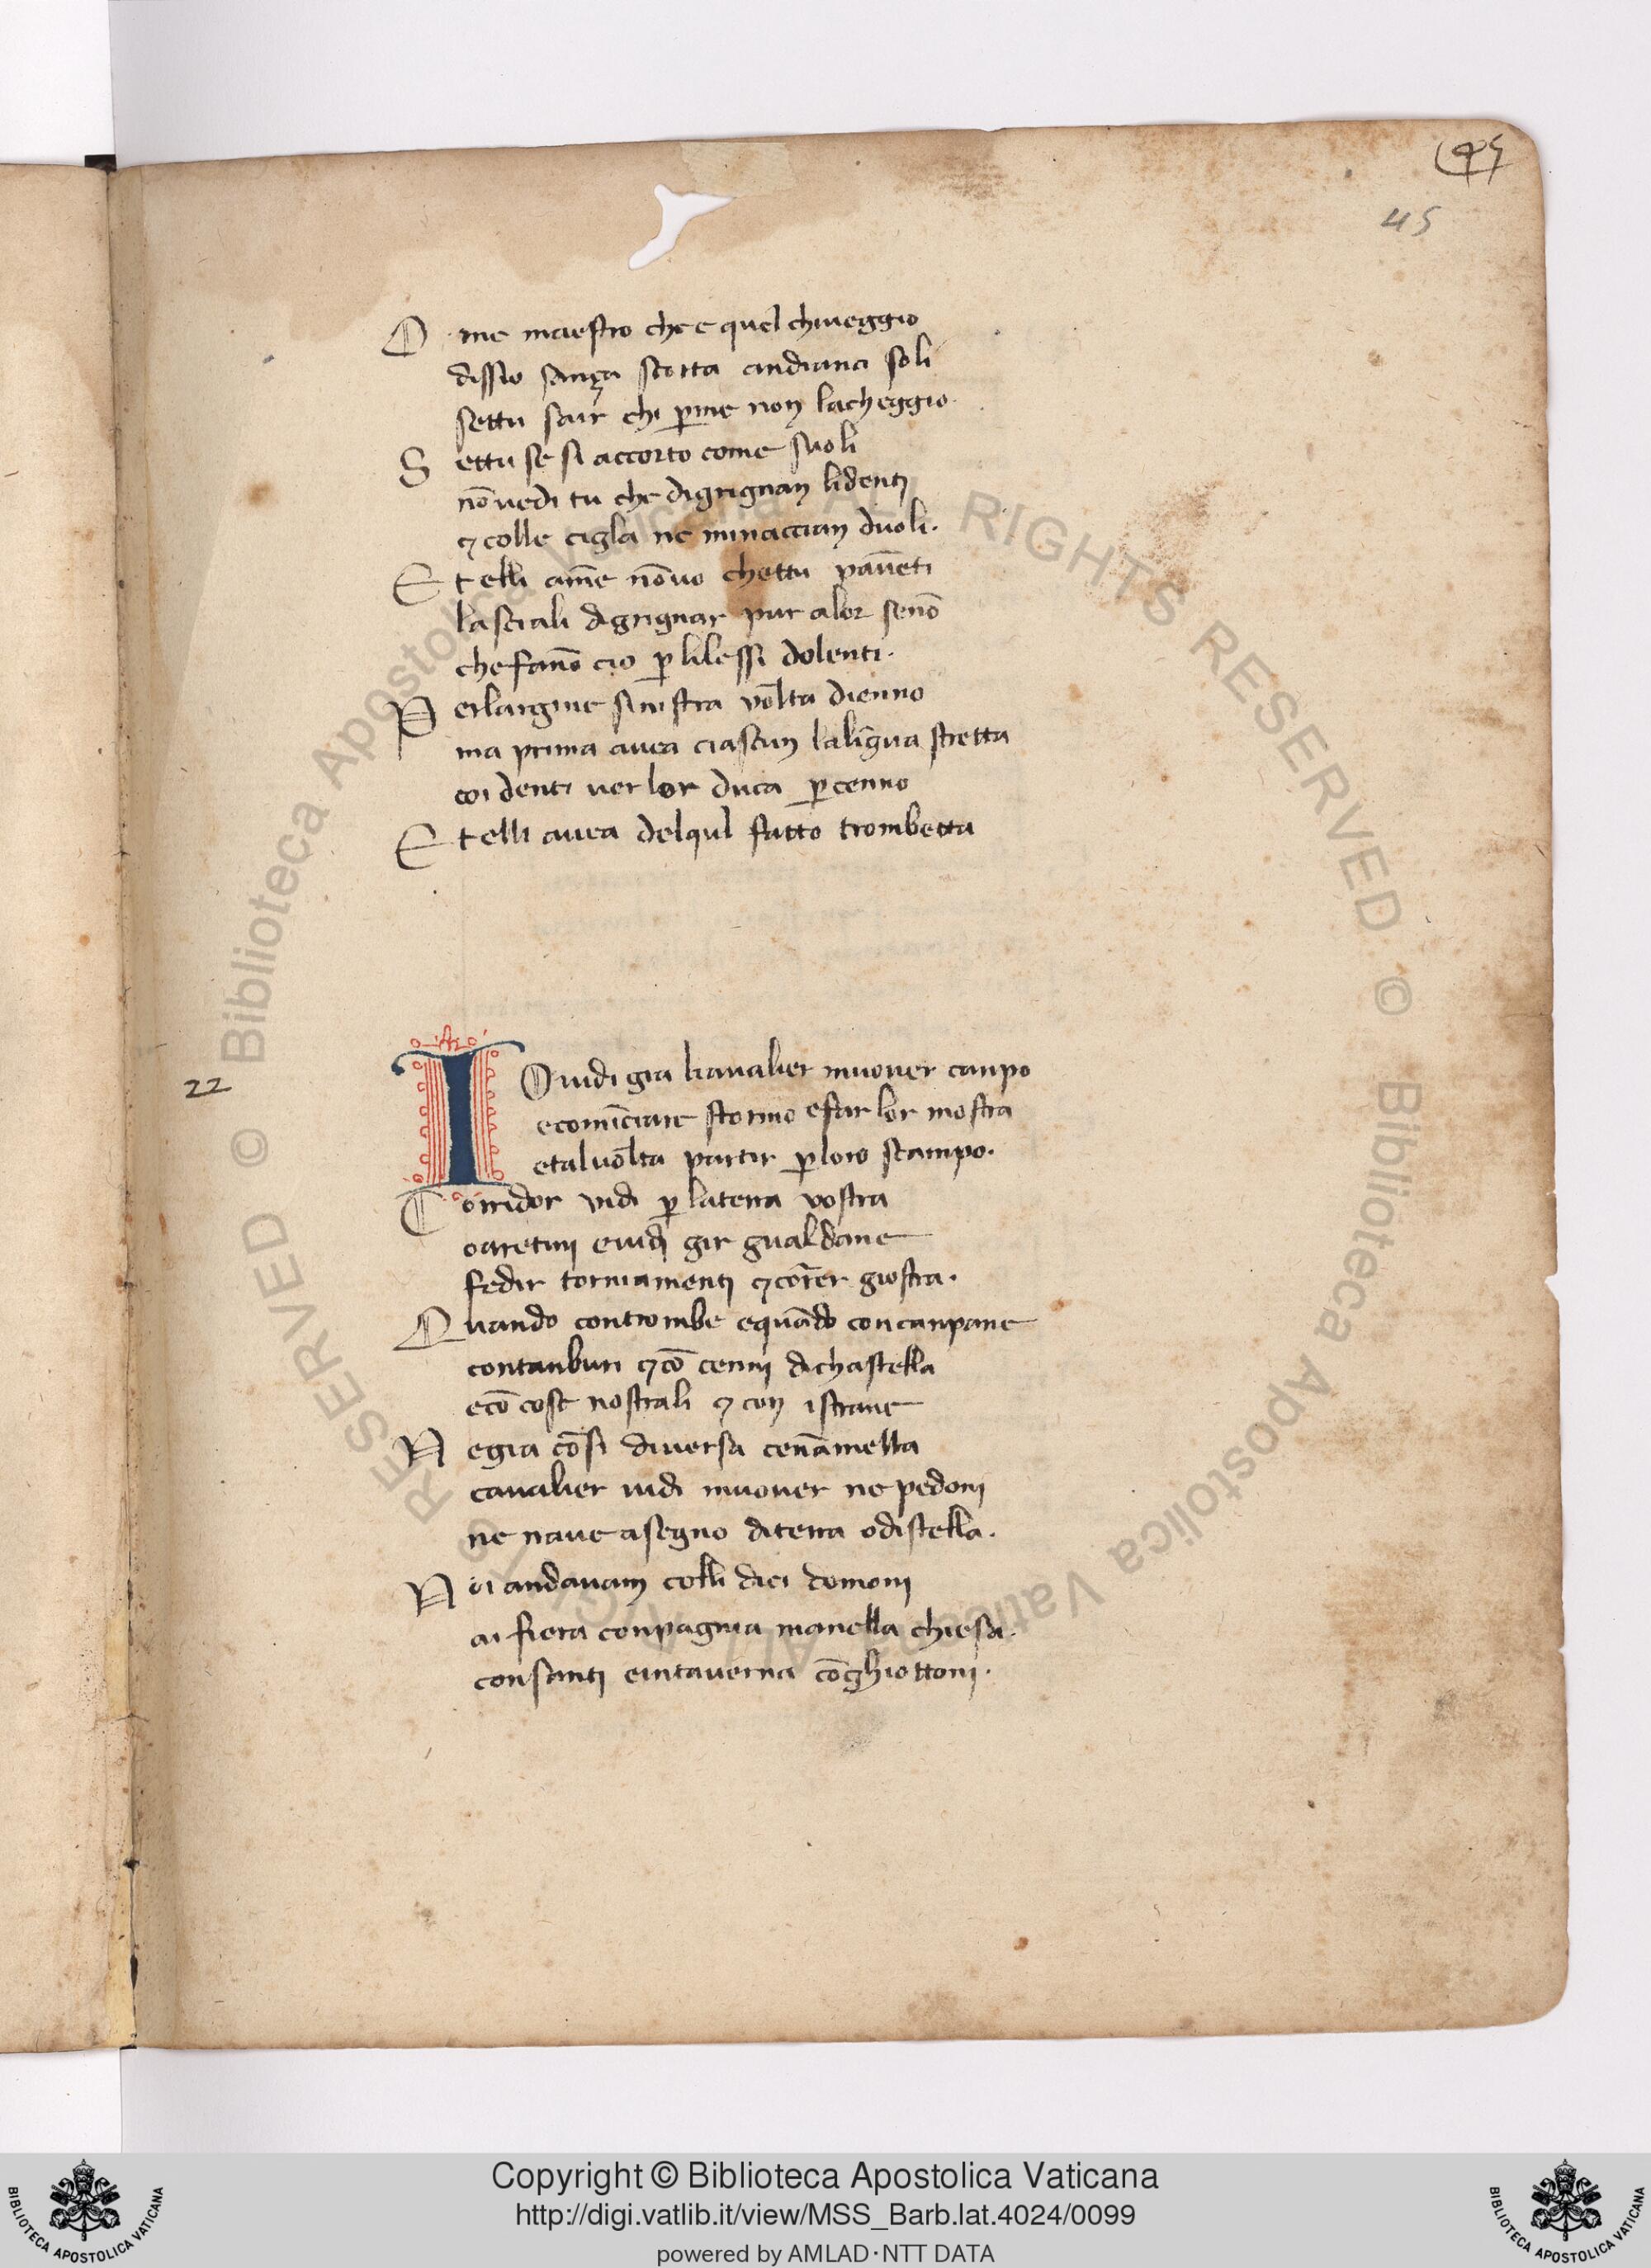 45
45
O me maestro che e quel chiueggio
dissio sança scorta andianci soli
settu sair chi ꝑme non lacheggio.
S ettu se si accorto come suoli
nō uedi tu che digrignan lidentj
⁊ colle cigla ne minaccian duoli.
E t elli ame nō uo chettu pauēti
lasciali digrignar pur alor senō
che fanō cio ꝑ lilessi dolenti.
P erlargine sinistra volta dienno
ma prima auea ciascun lalīgua stretta
coi denti uer lor duca ꝑ cenno
E t elli auea delqul fatto trombetta
22
I O uidi gia kaualier muouer canpo
e comīciare stormo e far lor mostra
e tal uolta partir ꝑ loro scampo.
C orridor vidi ꝑ la terra vostra
o aretinj e uidj gir gualdane
fedir torniamentj ⁊ cor̄er giostra.
Q uando con trombe e quādo con canpane
con tanburi ⁊ cō cennj di chastella
e cō cose nostrali ⁊ con istrane
N e gia cōsi diuersa cenāmella
caualier uidi muouer ne pedonj
ne naue a segno di terra o di stella.
N oi andauam colli dieci demonj
ai fiera conpagnia ma nella chiesa.
con santj e in tauerna cō ghiottonj.
© Biblioteca Apostolica Vaticana ALL RIGHTS RESERVED © Biblioteca Apostolica Vaticana ALL RIGHTS RESERVED
Copyright © Biblioteca Apostolica Vaticana
http://digi.vatlib.it/view/MSS_Barb.lat.4024/0099
powered by AMLAD·NTT DATA
BIBLIOTECA APOSTOLICA VATICANA
BIBLIOTECA APOSTOLICA VATICANA